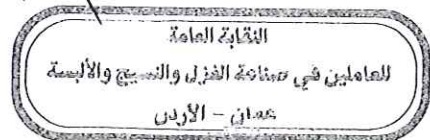 النقابة العامة
للعاملين في صناعة الغزل والنسيج والألبسة
عمان – الأردن